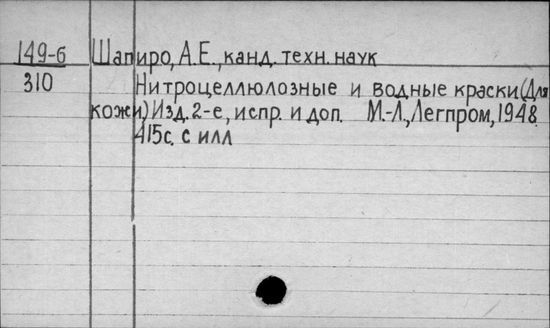 149-б Шапиро, А.Е., канд. техн. наук
310 Нитроцеллюлозные и водные краски (Для
кожи) Изд. 2-е, испр. и доп. М.-Л., Легпром, 1948.
415с. с илл